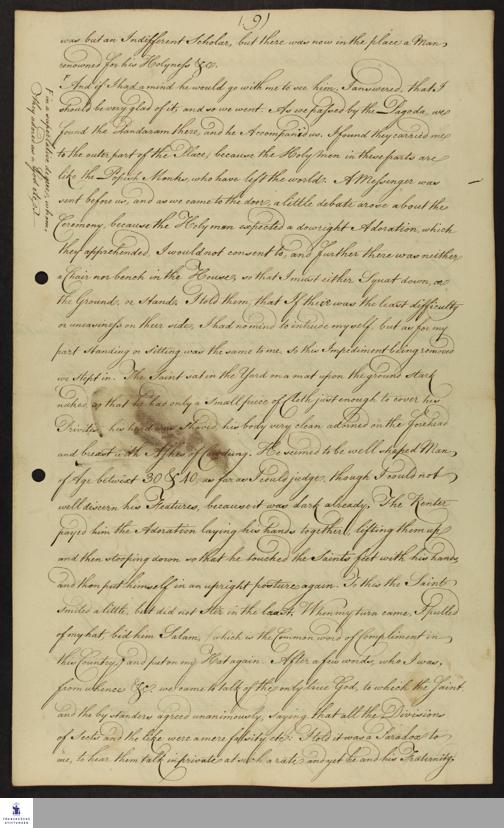 (9)
was but an Indifferent Scholar, but there was now in the place a Man
renowned for his Holyness &c.
And if I had a mind he would go with me to see him. I answered, that I
should be very glad of it, and so we went. As we passed by the Pagoda, we
found the Pandaram there, and he Accompanied us. I found they carried me
to the outer part of the Place, because the Holy men in these parts are
like the Popish Monks, who have left the world. A Messenger was
sent before us, and as we came to the door, a little debate arose about the
Ceremony, because the Holy man expected a downright Adoration, which
they apprehended I would not consent to, and further there was neither
a Chair nor bench in the House, so that I must either Squat down, on
the Ground, or Stand. I told them, that If their was the least difficulty
or uneasiness on their side, I had no mind to intrude myself, but as for my
part Standing or Sitting was the same to me, so this Impediment being removed
we stept in. The Saint sat in the Yard on a mat upon the ground stark
naked, as that he has only a Small piece of Cloth just enough to cover his
Privities, his head was Shaved, his body very clean adorned on the forehead
and breast with Ashes of Cowdung. He seemed to be well shaped Man,
of Age betwixt 30 & 40, as far as I could judge, though I could not
well discern his Features, because it was dark already. The Renter
payed him the Adoration laying his hands together, lifting them up
and then stooping down so that he touched the Saints feet with his hands,
and then put himself in an upright posture again. To this the Saint
smiled a little, but did not Stir in the least. When my turn came, I pulled
of my hat, bid him Salam, (which is the Common word of Compliment in
this Country,) and put on my Hat again. After a few words, who I was,
from whence &c. we came to talk of the only true God, to which the Saint
and the by standers agreed unanimously, Saying that all the Divisions
of Sects and the like were a mere falsity etc. I told it was a Paradox to
me, to hear them talk in private at such a rate and yet he and his Fraternity
in a superlative degree, whom
they adored as a first rate